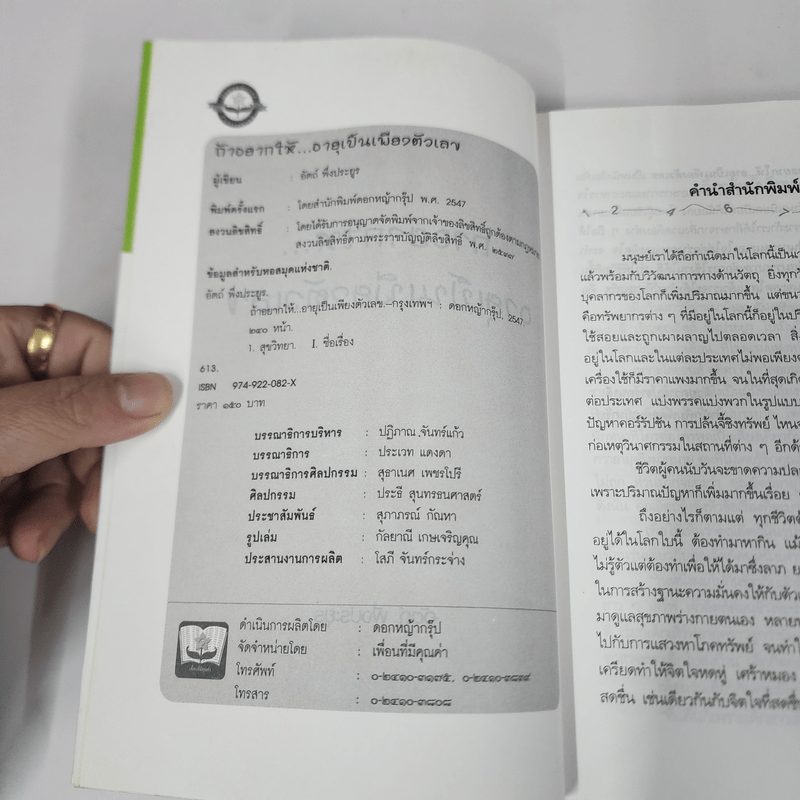 ถ้าอยากให้...อายุเป็นเพียงตัวเลข
ผู้เขียน : อัตถ์ พึ่งประยูร
พิมพ์ครั้งแรก : โดยสำนักพิมพ์ดอกหญ้ากรุ๊ป พ.ศ. 2547
สงวนลิขสิทธิ์ : โดยได้รับการอนุญาตจัดพิมพ์จากเจ้าของลิขสิทธิ์ถูกต้องตามกฎหมาย
สงวนลิขสิทธิ์ตามพระราชบัญญัติลิขสิทธิ์ พ.ศ. ๒๕๓๗
ข้อมูลสำหรับหอสมุดแห่งชาติ.
อัตถ์ พึ่งประยูร.
ถ้าอยากให้...อายุเป็นเพียงตัวเลข.--กรุงเทพฯ : ดอกหญ้ากรุ๊ป, 2547.
๒๔๐ หน้า.
1. สุขวิทยา. I. ชื่อเรื่อง
613.
ISBN 974-922-082-X
ราคา ๑๕๐ บาท
บรรณาธิการบริหาร : ปฏิภาณ จันทร์แก้ว
บรรณาธิการ : ประเวท แดงดา
บรรณาธิการศิลปกรรม : สุธาเนศ เพชรโปรี
ศิลปกรรม : ประธี สุนทรธนศาสตร์
ประชาสัมพันธ์ : สุภาภรณ์ กัณหา
รูปเล่ม : กัลยาณี เกษเจริญคุณ
ประสานงานการผลิต : โสภี จันทร์กระจ่าง
ดำเนินการผลิตโดย : ดอกหญ้ากรุ๊ป
จัดจำหน่ายโดย : เพื่อนที่มีคุณค่า
โทรศัพท์ : ๐-๒๔๑๐-๓๑๗๕, ๐-๒๔๑๐-๓๘๙๙
โทรสาร : ๐-๒๔๑๐-๓๘๐๘
คำนำสำนักพิมพ์
2 4 6
มนุษย์เราได้ถือกำเนิดมาในโลกนี้เป็น
แล้วพร้อมกับวิวัฒนาการทางด้านวัตถุ ยิ่งทุก
บุคลากรของโลกก็เพิ่มปริมาณมากขึ้น แต่ขณ
คือทรัพยากรต่าง ๆ ที่มีอยู่ในโลกนี้ก็อยู่ในปริ
ใช้สอยและถูกเผาผลาญไปตลอดเวลา สิ่
อยู่ในโลกและในแต่ละประเทศไม่พอเพียง
เครื่องใช้ก็มีราคาแพงมากขึ้น จนในที่สุดเกิด
ต่อประเทศ แบ่งพรรคแบ่งพวกในรูปแบบ
ปัญหาคอร์รัปชัน การปล้นจี้ชิงทรัพย์ ไหนจ
ก่อเหตุวินาศกรรมในสถานที่ต่าง ๆ อีกด้
ชีวิตผู้คนนับวันจะขาดความปล
เพราะปริมาณปัญหาก็เพิ่มมากขึ้นเรื่อย
ถึงอย่างไรก็ตามแต่ ทุกชีวิตต้
อยู่ได้ในโลกใบนี้ ต้องทำมาหากิน แม้
ไม่รู้ตัวแต่ต้องทำเพื่อให้ได้มาซึ่งลาภ ย
ในการสร้างฐานะความมั่นคงให้กับตัว
มาดูแลสุขภาพร่างกายตนเอง หลาย
ไปกับการแสวงหาโภคทรัพย์ จนทำใ
เครียดทำให้จิตใจหดหู่ เศร้าหมอง
สดชื่น เช่นเดียวกันกับจิตใจที่สดชื่